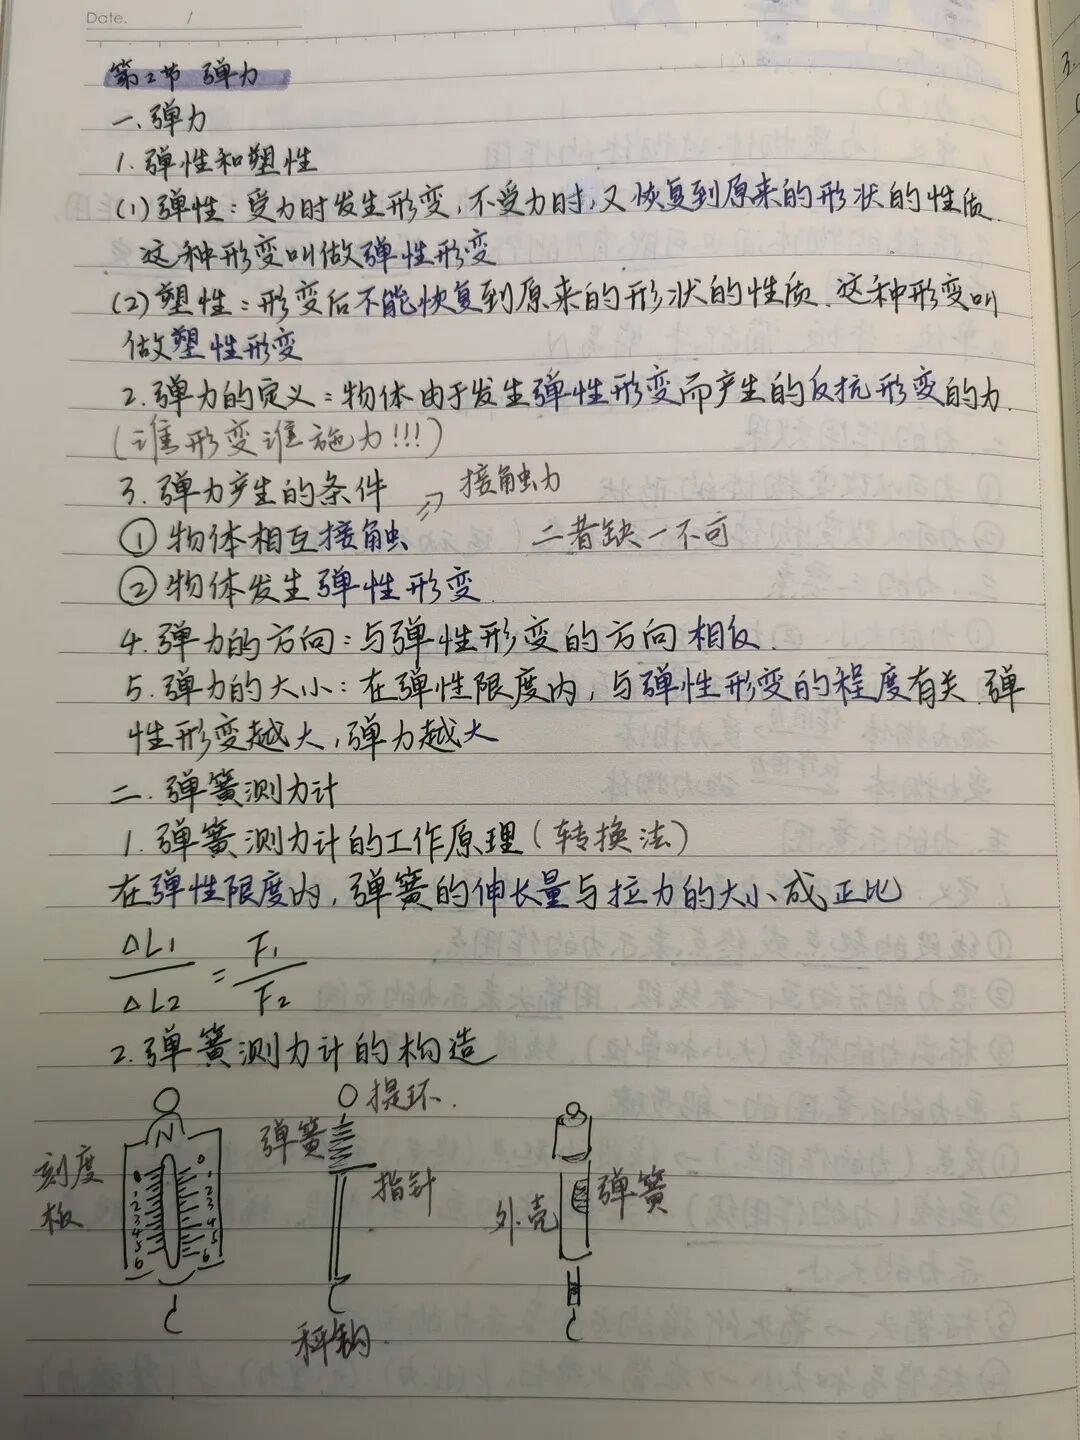 Date. /
第2节 弹力
一、弹力
1. 弹性和塑性
(1) 弹性：受力时发生形变，不受力时，又恢复到原来的形状的性质.
这种形变叫做弹性形变
(2) 塑性：形变后不能恢复到原来的形状的性质. 这种形变叫
做塑性形变
2. 弹力的定义：物体由于发生弹性形变而产生的反抗形变的力.
(谁形变谁施力!!!)
3. 弹力产生的条件 => 接触力
① 物体相互接触 二者缺一不可
② 物体发生弹性形变
4. 弹力的方向：与弹性形变的方向相反.
5. 弹力的大小：在弹性限度内，与弹性形变的程度有关. 弹
性形变越大，弹力越大
二. 弹簧测力计
1. 弹簧测力计的工作原理（转换法）
在弹性限度内，弹簧的伸长量与拉力的大小成正比
ΔL1/ΔL2 = F1/F2
2. 弹簧测力计的构造
提环.
弹簧
N
刻度
板
0 1 2 3 4 5 6
0 1 2 3 4 5 6
指针
外壳
弹簧
秤钩.